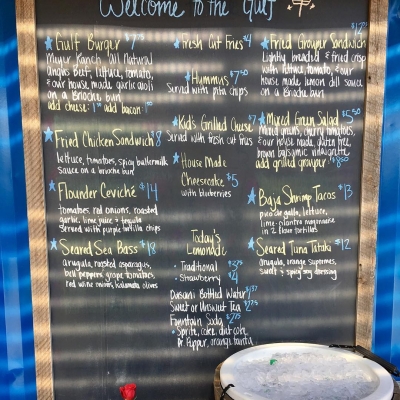 Welcome to the Gulf
Gulf Burger $7.75
Meyer Ranch all Natural
angus beef, lettuce, tomato,
& our house made garlic aioli
on a Brioche bun
add cheese: add bacon:
Fried Chicken Sandwich $8
lettuce, tomatoes, spicy buttermilk
sauce on a brioche bun
Flounder Ceviché $14
tomatoes, red onions, roasted
garlic, lime juice & tequila
served with purple tortilla chips
Seared Sea Bass $18
arugula, roasted asparagus,
bell peppers grape tomatoes,
red wine onions, kalamata olives
Fresh Cut Fries $4
Hummus $7.50
Served with pita chips
Kid's Grilled Cheese $7
Served with fresh cut fries
House Made
Cheesecake $5
with blueberries
Today's
Lemonade
• Traditional
• Strawberry $4
Dasani Bottled Water
Sweet or Unsweet Tea $2.75
Fountain Soda $2.75
• Sprite, coke, diet coke,
Dr Pepper, orange fanta
Fried Grouper Sandwich
Lightly breaded & fried crisp
with lettuce, tomato, & our
house made lemon dill sauce
on a Brioche bun
Mixed Green Salad $5.50
Mixed greens, cherry tomatoes,
& our house made, gluten free
brown balsamic vinaigrette
add grilled grouper $8.50
Baja Shrimp Tacos $13
pico de gallo, lettuce,
lime-cilantro mayonnaise
in 2 flour tortillas
Seared Tuna Tataki $12
arugula, orange supremes,
sweet & spicy soy dressing